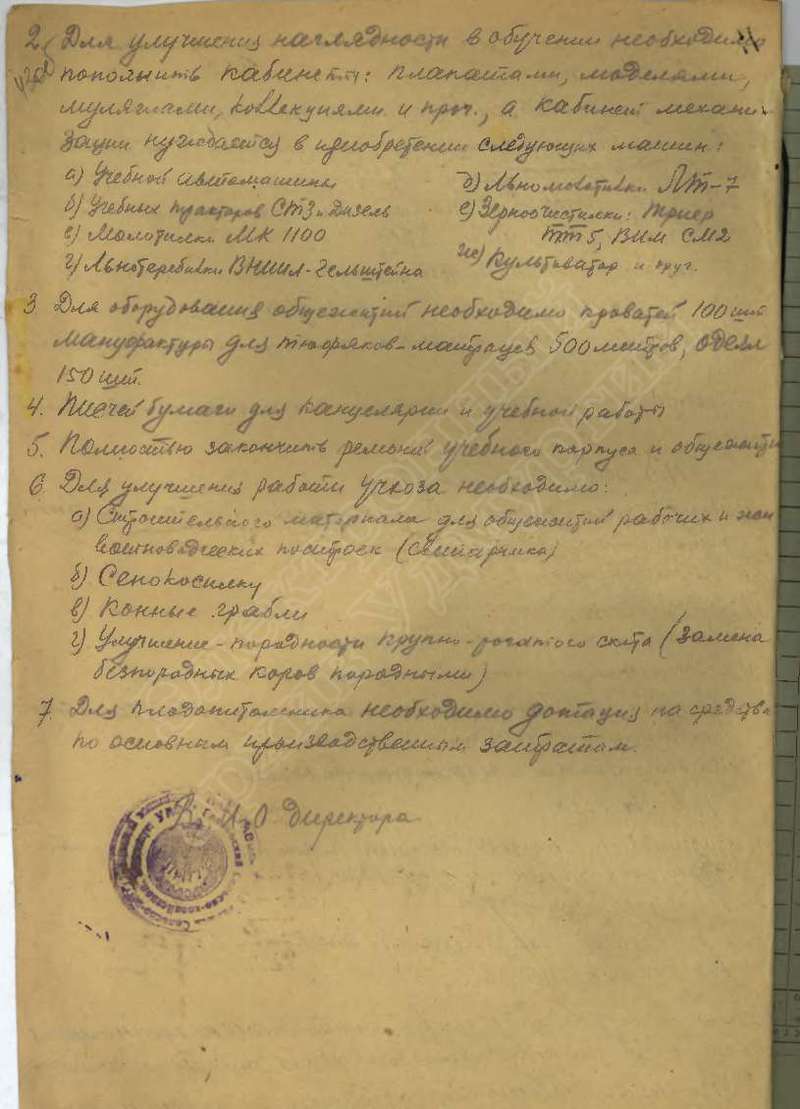 2. Для улучшения наглядности в обучении необходимо
пополнить кабинеты: плакатами, моделями,
муляжами, коллекциями и проч., а кабинет механи-
зации нуждается в приобретении следующих машин:
а) Учебной автомашины
б) Учебных тракторов СТЗ и дизель
в) Молотилки МК 1100
г) Льнотеребилки ВНИИЛ-Гельштейна
д) Льномолотилки ЛТ-7
е) Зерноочистилки: триер
ТТ 5, ВИМ СМ2
ж) Культиватор и друг.
3 Для оборудования общежитий необходимо кроватей 100 шт
мануфактуры для тюфяков-матрацев 500 метров, одеял
150 шт.
4. Писчей бумаги для канцелярии и учебной работы
5. Полностью закончить ремонт учебного корпуса и общежити
6. Для улучшения работы учхоза необходимо:
а) Строительного материала для общежитий рабочих и жи
вотноводческих построек (свинарника)
б) Сенокосилку
в) Конные грабли
г) Улучшение-породности крупно-рогатого скота (замена
беспородных коров породными)
7. Для плодопитомника необходимо дотация на средства
по основным производственным затратам.
В. И. О директора